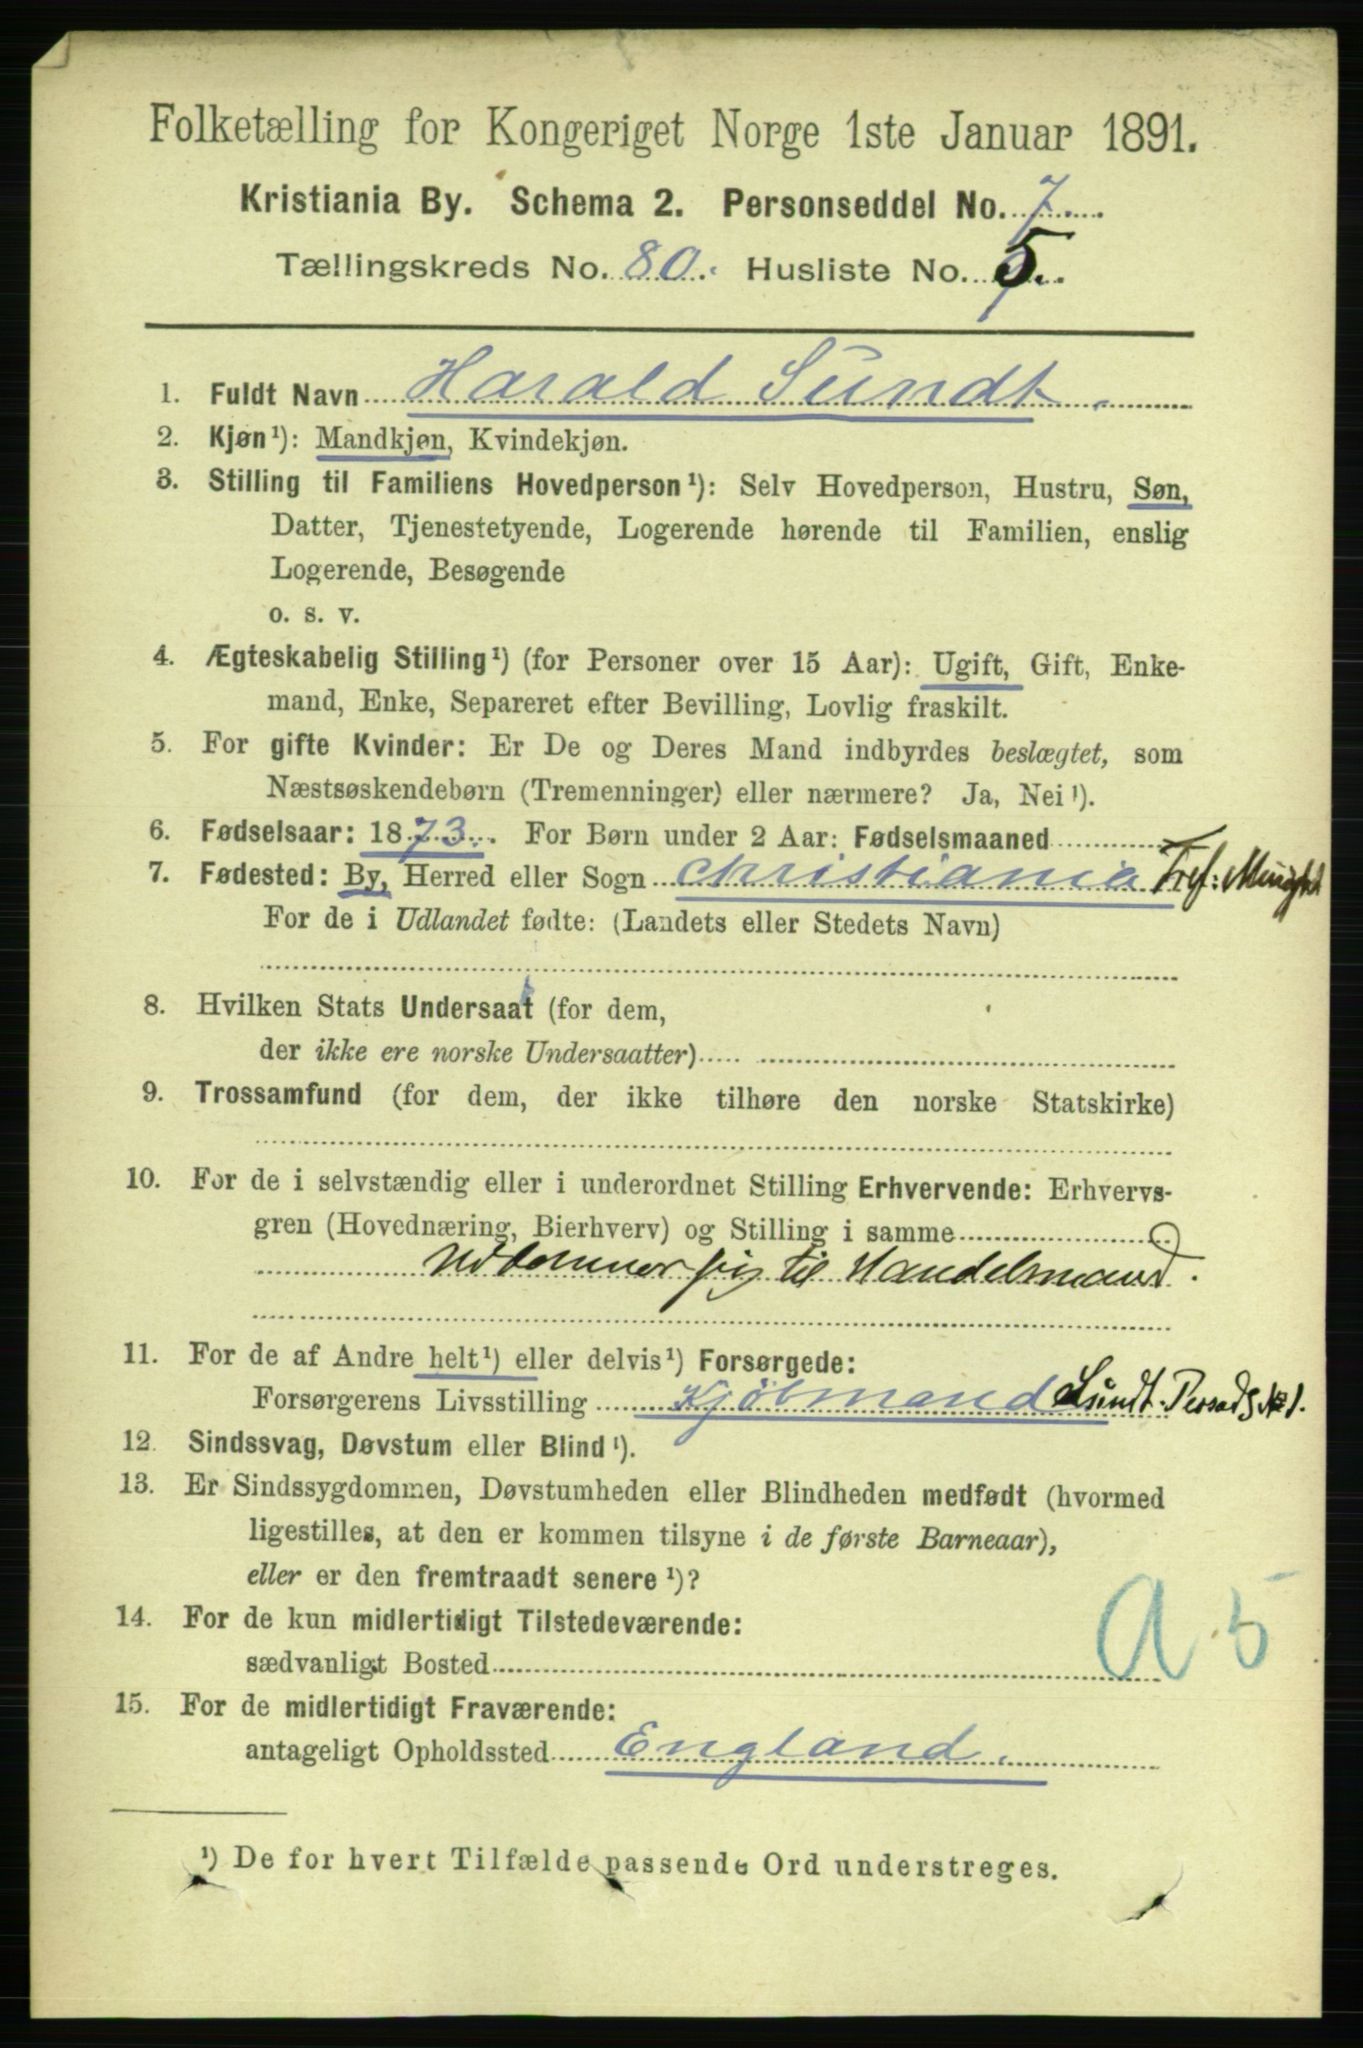 Folketælling for Kongeriget Norge 1ste Januar 1891.
Kristiania By. Schema 2. Personseddel No. 7.
Tællingskreds No. 80. Husliste No. 5.
1. Fuldt Navn Harald Sundt.
2. Kjøn ¹): Mandkjøn, Kvindekjøn.
3. Stilling til Familiens Hovedperson ¹): Selv Hovedperson, Hustru, Søn,
Datter, Tjenestetyende, Logerende hørende til Familien, enslig
Logerende, Besøgende
o. s. v.
4. Ægteskabelig Stilling ¹) (for Personer over 15 Aar): Ugift, Gift, Enke-
mand, Enke, Separeret efter Bevilling, Lovlig fraskilt.
5. For gifte Kvinder: Er De og Deres Mand indbyrdes beslægtet, som
Næstsøskendebørn (Tremenninger) eller nærmere? Ja, Nei ¹).
6. Fødselsaar: 1873. For Børn under 2 Aar: Fødselsmaaned
7. Fødested: By, Herred eller Sogn Christiania Tref: Menighed
For de i Udlandet fødte: (Landets eller Stedets Navn)
8. Hvilken Stats Undersaat (for dem,
der ikke ere norske Undersaatter)
9. Trossamfund (for dem, der ikke tilhøre den norske Statskirke)
10. For de i selvstændig eller i underordnet Stilling Erhvervende: Erhvervs-
gren (Hovednæring, Bierhverv) og Stilling i samme
uddanner sig til Handelsmand.
11. For de af Andre helt ¹) eller delvis ¹) Forsørgede:
Forsørgerens Livsstilling Kjöbmand Sundt. No 1.
12. Sindssvag, Døvstum eller Blind ¹).
13. Er Sindssygdommen, Døvstumheden eller Blindheden medfødt (hvormed
ligestilles, at den er kommen tilsyne i de første Barneaar),
eller er den fremtraadt senere ¹)?
14. For de kun midlertidigt Tilstedeværende:
sædvanligt Bosted
a. 5
15. For de midlertidigt Fraværende:
antageligt Opholdssted England.
¹) De for hvert Tilfælde passende Ord understreges.